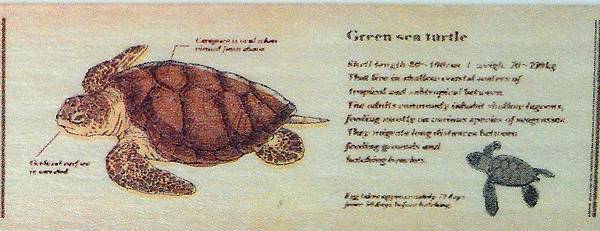 Carapace is oval when
viewed from above
Green sea turtle
Shell length 80~100cm weigh 70~230kg
That live in shallow coastal waters of
tropical and subtropical between
The adults commonly inhabit shallow lagoons,
feeding mostly on various species of seagrasses.
They migrate long distances between
feeding grounds and
hatching beaches.
is serrated
Egg takes approximately days
days before hatching